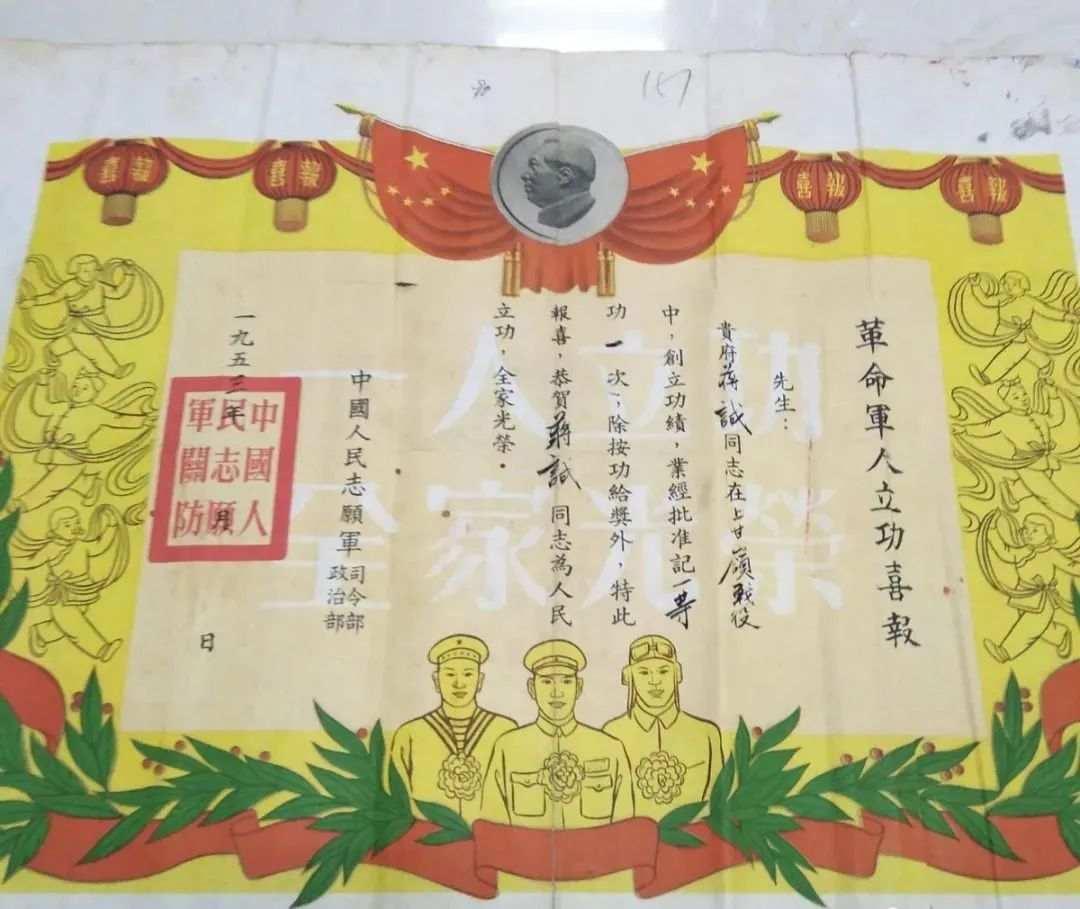 喜報
喜報
喜報
喜報
革命軍人立功喜報
先生：
貴府蔣誠同志在上甘嶺戰役
中，創立功績，業經批准記一等
功一次；除按功給獎外，特此
報喜，恭賀蔣誠同志為人民
立功，全家光榮。
中國人民志願軍司令部
政治部
一九五三年 月 日
中國人
民志願
軍關防
一人立功
全家光榮